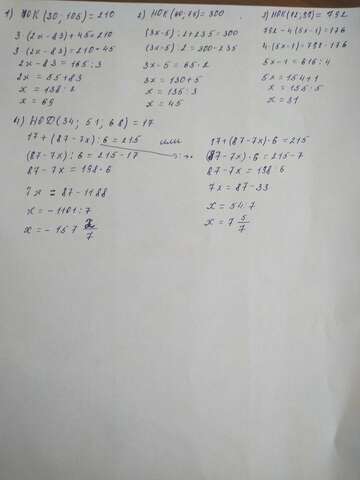 1) НОК (30; 105) = 210
3·(2x-83)+45=210
3·(2x-83)=210-45
2x-83=165:3
2x=55+83
x=138:2
x=69
2) НОК (60,75)=300
(3x-5):2+235=300
(3x-5):2=300-235
3x-5=65·2
3x=130+5
x=135:3
x=45
3) НОК(72,99)=792
792-4(5x-1)=176
4·(5x-1)=792-176
5x-1=616:4
5x=154+1
x=155:5
x=31
4) НОД(34; 51; 68)=17
17+(87-7x):6=215 или
(87-7x):6=215-17
87-7x=198·6
7x=87-1188
x=-1101:7
x=-157 2/7
17+(87-7x)·6=215
(87-7x)·6=215-7
87-7x=198:6
7x=87-33
x=54:7
x=7 5/7